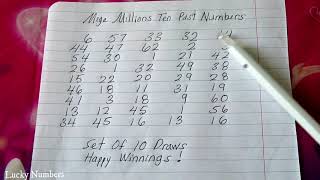 Mega Millions Ten Past Numbers
6 57 33 32
44 47 62 2
54 30 1 21 42
26 1 32 49 38
15 22 20 29 28
46 18 11 31 19
41 3 18 9 60
13 12 45 1 56
34 45 16 13 16
Set Of 10 Draws
Happy Winnings!
Lucky Numbers